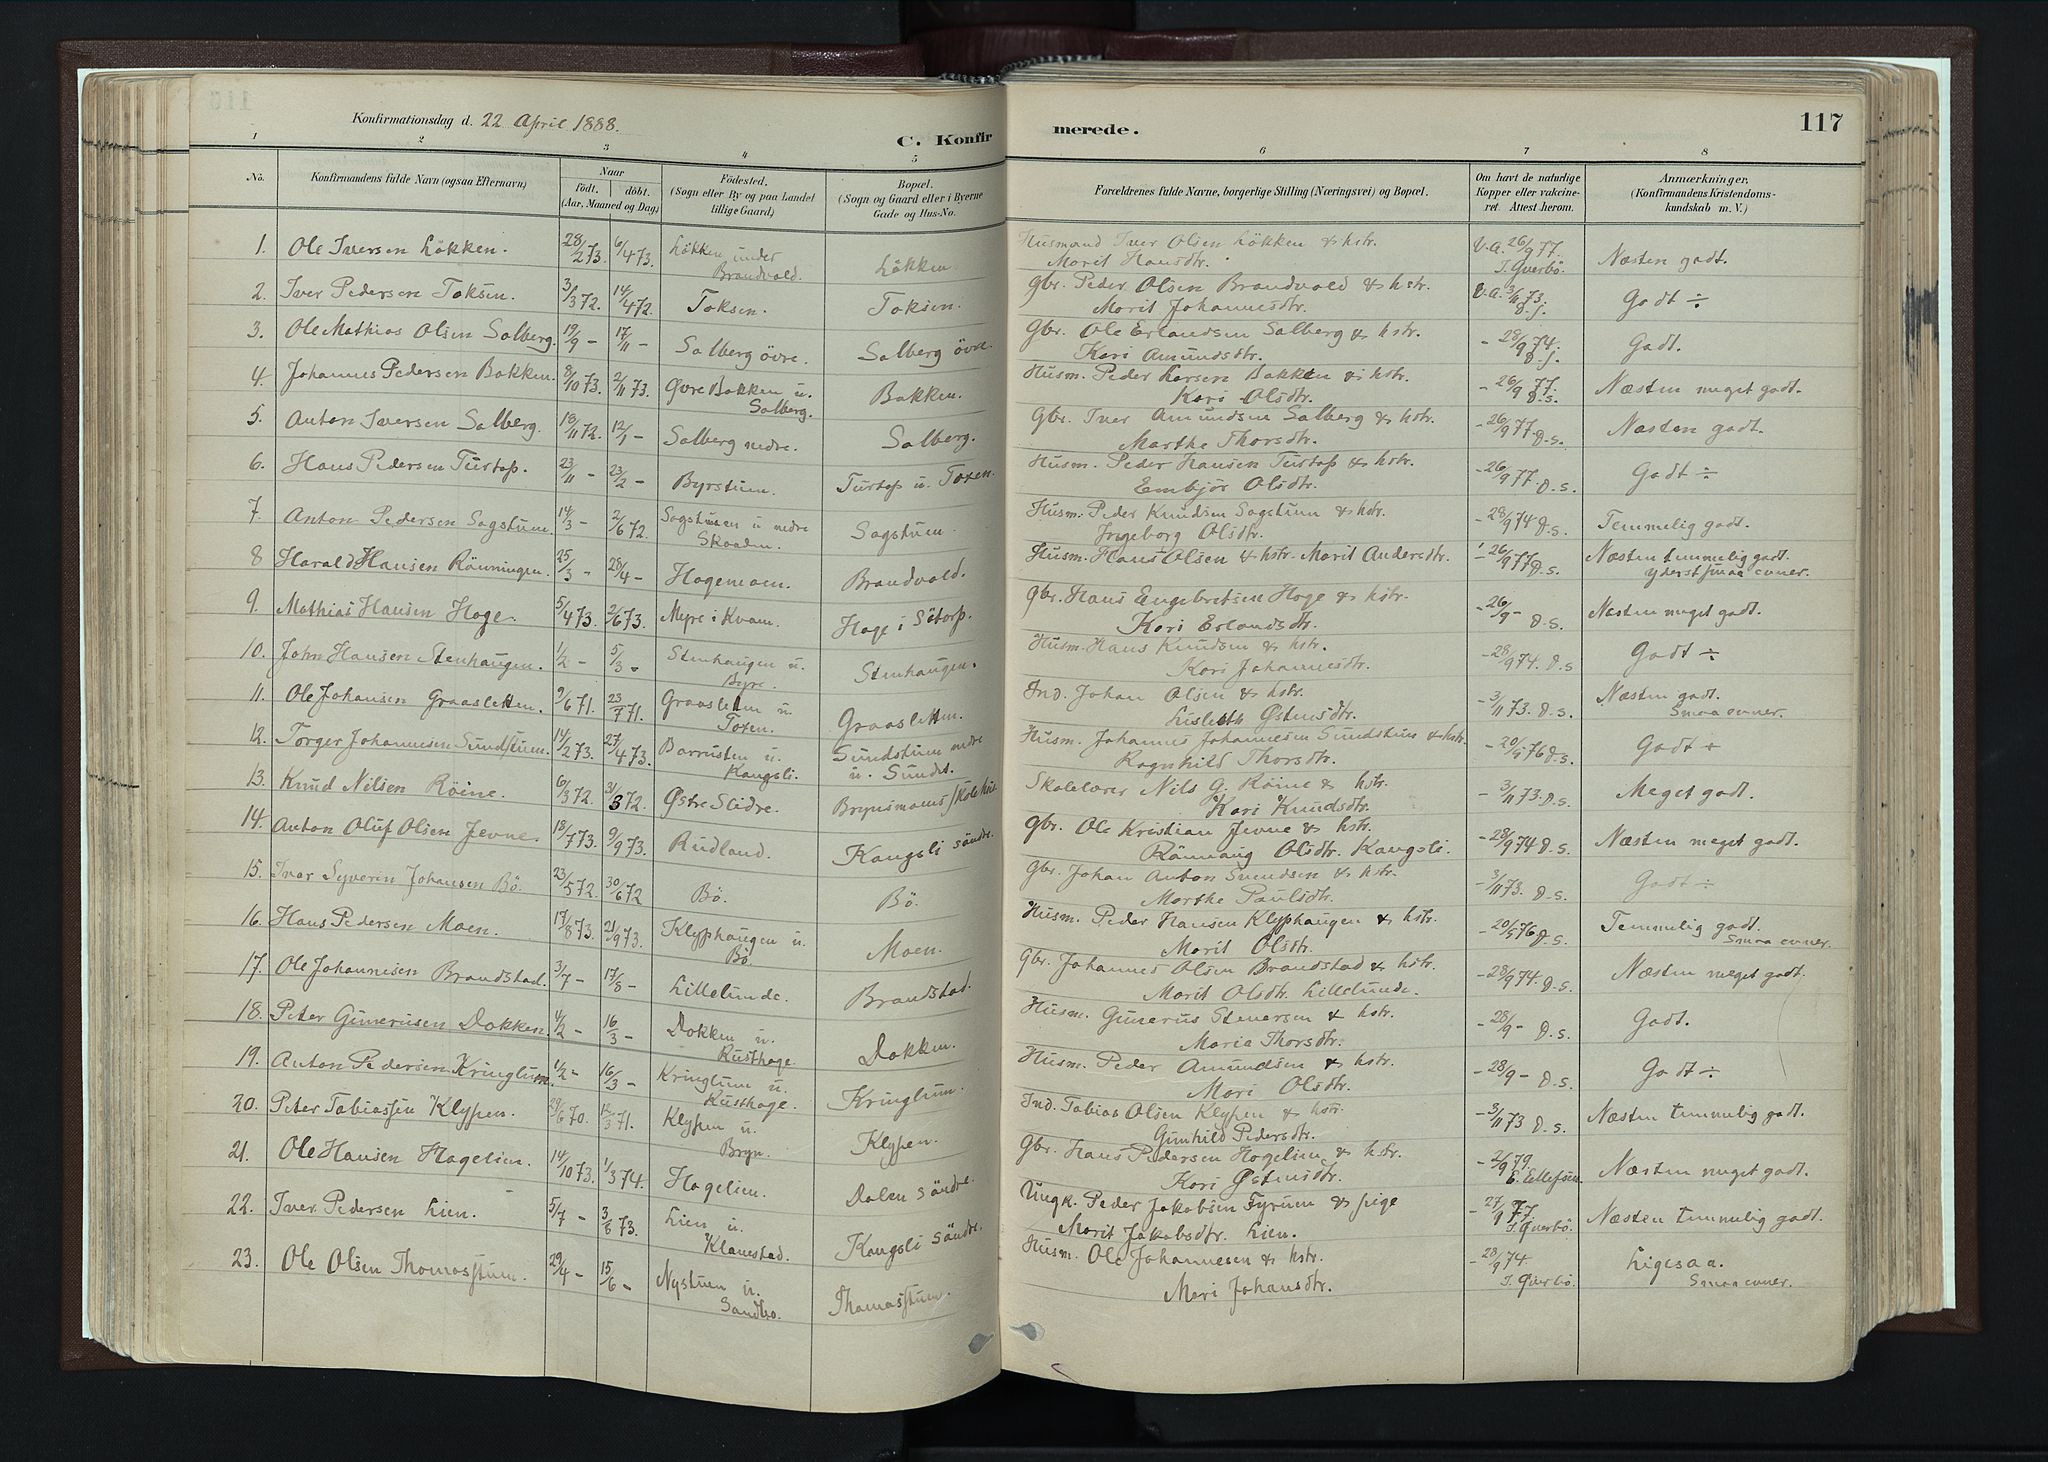 Konfirmationsdag d. 22 April 1888.
C. Konfirmerede.
117
1 2 3 4 5 6 7 8
No. | Konfirmandens fulde Navn (ogsaa Efternavn) | Naar født. døbt. (Aar, Maaned og Dag) | Födested. (Sogn eller By og paa Landet tillige Gaard) | Bopæl. (Sogn og Gaard eller i Byerne Gade og Hus-No. | Forældrenes fulde Navne, borgerlige Stilling (Næringsvei) og Bopæl. | Om havt de naturlige Kopper eller vakcineret. Attest herom. | Anmærkninger, (Konfirmandens Kristendomskundskab m. V.)
1. Ole Iversen Løkken. 28/2 73. 6/4 73. Løkken under Brandvold. Løkken. Husmand Iver Olsen Løkken & hstr. Marit Hansdtr. V.A. 26/9 77. I. Qverbö. Næsten godt.
2. Iver Pedersen Toksen. 3/3 72. 14/4 72. Toksen. Toksen. Gbr. Peder Olsen Brandvold & hstr. Marit Johannesdtr. V.A. 3/11 73. Godt ÷
3. Ole Mathias Olsen Solberg. 19/9 - 17/11 - Solberg övre. Solberg övre. Gbr. Ole Erlandsen Solberg & hstr. Kari Amundsdtr. - 28/9 74. Godt.
4. Johannes Pedersen Bakken. 8/10 73. 2/11 73. Øvre Bakken u. Solberg. Bakken. Husm. Peder Larsen Bakken & hstr. Kari Olsdtr. - 26/9 77. D.S. Næsten meget godt.
5. Anton Iversen Solberg. 18/11 72. 12/1 - Solberg nedre. Solberg. Gbr. Iver Amundsen Solberg & hstr. Marthe Thorsdtr. - 26/9 77. D.S. Næsten godt.
6. Hans Pedersen Turtop. 23/11 - 23/2 - Byrstuen. Turtop u. Toxen. Husm. Peder Hansen Turtop & hstr. Embjör Olsdtr. - 26/9 77. D.S. Godt ÷
7. Anton Pedersen Sagstuen. 14/3 - 2/6 72. Sagstuen u nedre Skoaden. Sagstuen. Husm. Peder Knudsen Sagstuen & hstr. Ingeborg Olsdtr. - 28/9 74 D.S. Temmelig godt.
8 Harald Hansen Rönningen. 25/3 - 28/4 - Hagemoen. Brandvold. Husm. Hans Olsen & hstr. Marit Andersdtr. - 26/9 77 D.S. Næsten temmelig godt. yderst smaa evner.
9. Mathias Hansen Hage. 5/4 73. 2/6 73. Myre i Kvam. Hage i Sötorp. Gbr. Hans Engebretsen Hage & hstr. Kari Erlandsdtr. - 26/9 - D.S. Næsten meget godt.
10. John Hansen Stenhaugen. 1/2 - 5/3 - Stenhaugen u. Byre. Stenhaugen. Husm. Hans Knudsen & hstr. Kari Johannesdtr. - 28/9 74. D.S Godt ÷
11. Ole Johansen Graasletten. 9/6 71. 23/7 71. Graasletten u. Toxen. Graasletten. Ind. Johan Olsen & hstr. Lisbeth Østensdtr. - 3/11 73. D.S. Næsten godt. Smaa evner.
12. Torger Johannesen Sundstuen. 14/2 73. 27/4 73. Barrusten u. Kangsli. Sundstuen nedre u. Sundet. Husm. Johannes Johannesen Sundstuen & hstr. Ragnhild Thorsdtr. - 20/5 76 D.S. Godt +
13. Knud Nilsen Röine. 6/3 72. 31/3 72. Østre Slidre. Brynsmoens Skolehus. Skolelærer Nils G. Röine & hstr. Kari Knudsdtr. - 3/11 73. D.S. Meget godt.
14. Anton Oluf Olsen Jevne. 18/7 73. 9/9 73. Rudland. Kangsli söndre. Gbr. Ole Kristian Jevne & hstr. Rönnaug Olsdtr. Kangsli. - 28/9 74 D.S. Næsten meget godt.
15. Ivar Syverin Johansen Bö. 23/5 72. 30/6 72 Bö. Bö. Gbr. Johan Anton Svendsen & hstr. Marthe Paulsdtr. - 3/11 73. D.S. Godt ÷
16. Hans Pedersen Moen. 17/8 73. 21/9 73. Klyphaugen u. Bö. Moen. Husm. Peder Hansen Klyphaugen & hstr. Marit Olsdtr. - 20/5 76. D.S. Temmelig godt. Smaa evner.
17. Ole Johannesen Brandstad. 3/7 - 17/8 - Lillelunde. Brandstad. Gbr. Johannes Olsen Brandstad & hstr. Marit Olsdtr. Lillelunde. - 28/9 74. D.S. Næsten meget godt.
18. Peter Gunerusen Dokken. 4/2 - 16/3 - Dokken u. Rusthage. Dokken. Husm. Gunerus Stenersen & hstr. Maria Thorsdtr. - 28/9 - D.S. Godt.
19. Anton Pedersen Kringlum. 1/2 - 16/3 - Kringlum u. Rusthage. Kringlum. Husm. Peder Amundsen & hstr. Mari Olsdtr. - 28/9 - D.S. Godt ÷
20. Peter Tobiassen Klypen. 29/6 70. 12/3 71. Klypen u. Bryn. Klypen. Ind. Tobias Olsen Klypen & hstr. Gunhild Pedersdtr. - 3/11 73 D.S. Næsten temmelig godt.
21. Ole Hansen Hagelien. 14/10 73. 1/3 74. Hagelien. Dalen söndre. Gbr. Hans Pedersen Hagelien & hstr. Kari Østensdtr. - 2/9 79. E. Ellefsen. Næsten meget godt.
22. Iver Pedersen Lien. 5/7 - 3/8 73. Lien u. Klamstad. Kangsli söndre. Ungk. Peder Jakobsen Fyruen & pige Marit Jakobsdtr. Lien. - 27/9 77. I. Qverbö. Næsten temmelig godt.
23. Ole Olsen Thomasstuen. 29/4 - 15/6 - Nystuen u. Sandbo. Thomasstuen. Husm. Ole Johannesen & hstr. Mari Johansdtr. - 28/9 74. I. Qverbö. Ligesaa. Smaa evner.